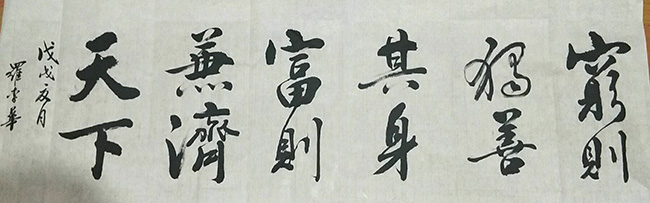 窮則
獨善
其身
富則
兼濟
天下
戊戌夏月